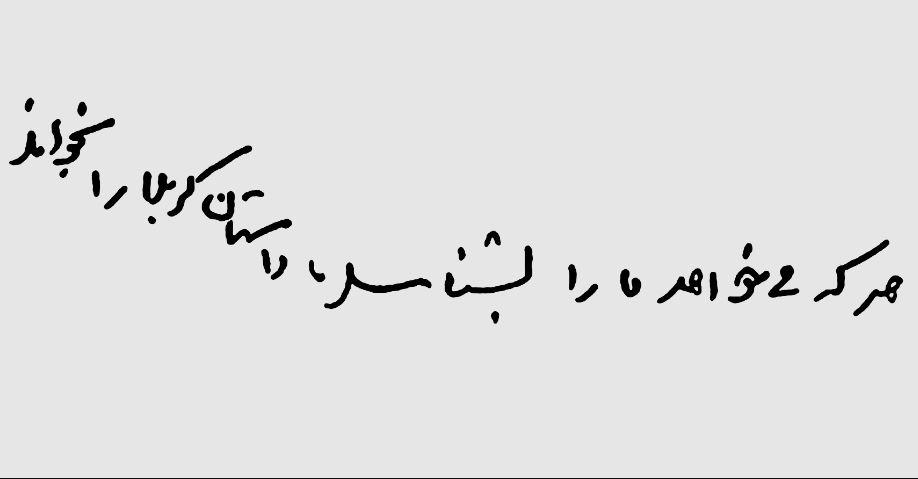 هر که می خواهد ما را بشناسد داستان کربلا را بخواند